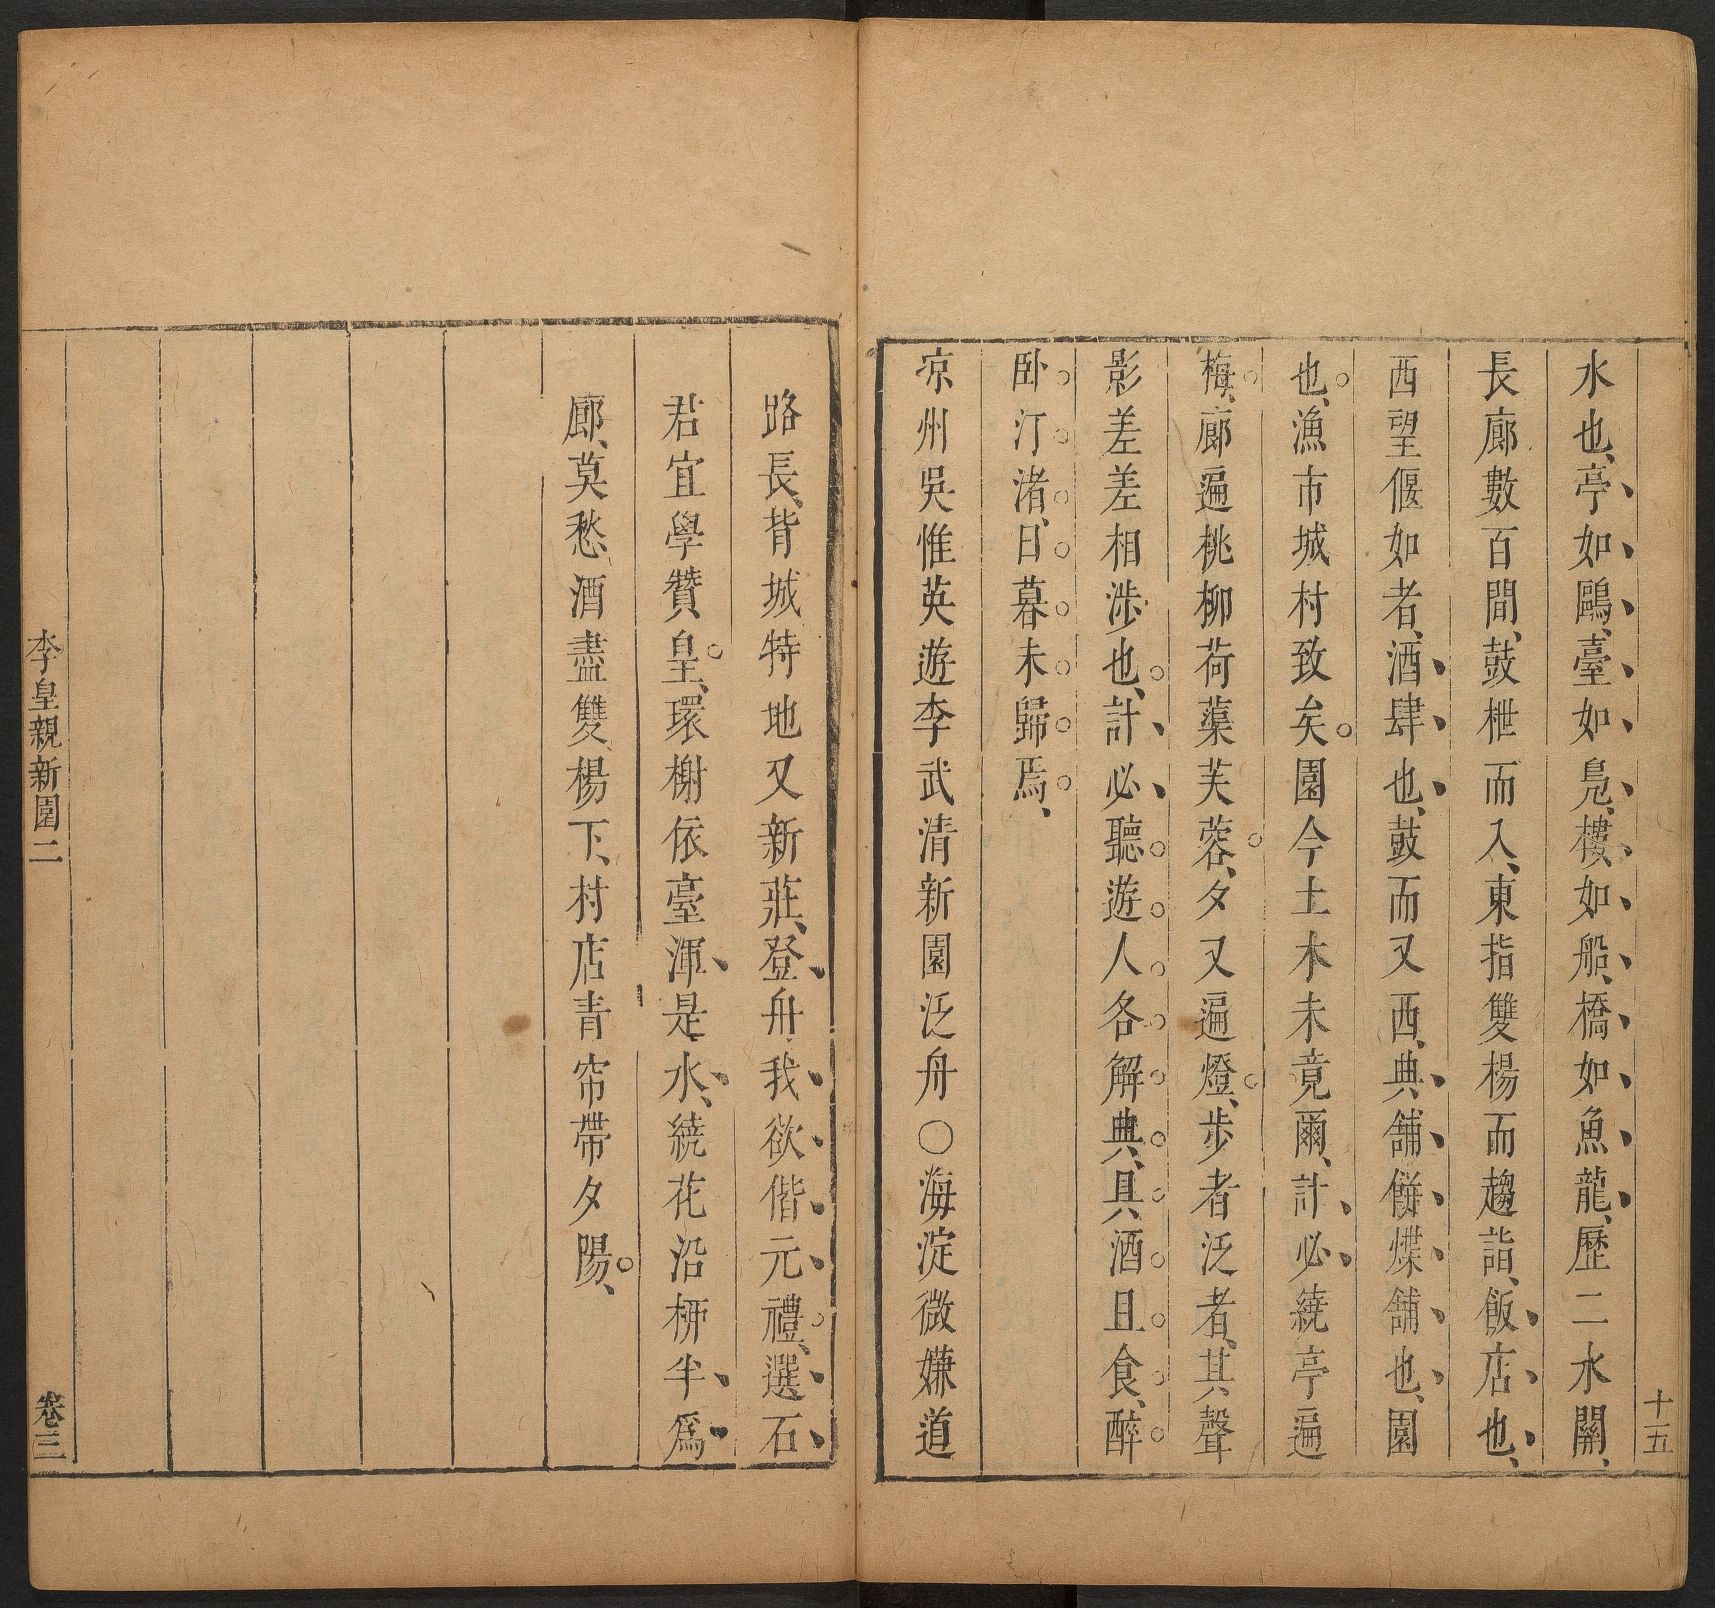 十五
水也、亭如鷗、臺如鳧、樓如船、橋如魚龍、歷二水關、
長廊數百間、鼓枻而入、東指雙楊而趨詣、飯店也、
西望偃如者、酒肆也、鼓而又西、典舖餅煠舖也、園
也、漁市城村致矣。園今土木未竟爾、計必繞亭遍
梅、廊遍桃柳荷蕖芙蓉、夕又遍燈、步者泛者、其聲
影差差相涉也、計必聽遊人各解典、具酒且食、醉
卧汀渚、日暮未歸焉、
凉州吳惟英遊李武清新園泛舟〇海淀微嫌道
路長、背城特地又新莊、登舟我欲偕元禮、選石
君宜學贊皇、環榭依臺渾是水、繞花沿栁半爲
廊、莫愁酒盡雙楊下、村店青帘帶夕陽、
李皇親新園二
卷三